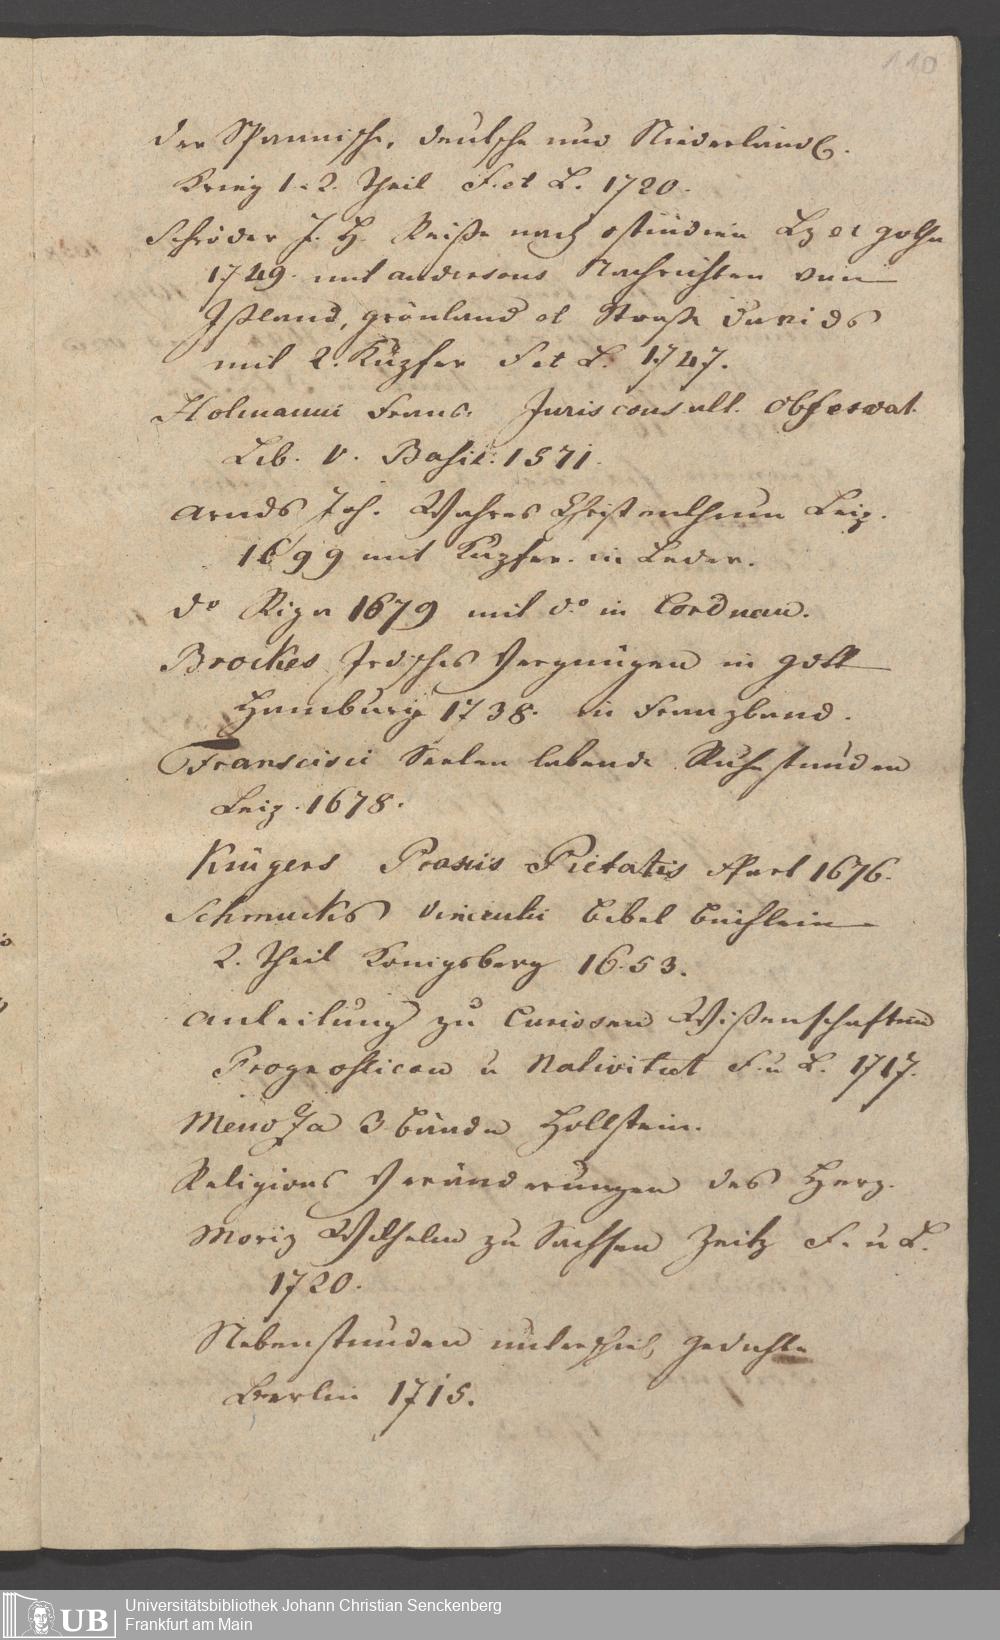 110
der Spannische, deutsche und Niederländ.
Krieg 1. 2. Theil F. et L. 1720.
Schröder J. H. Reiße nach ostindien Lz et gotha
1749. mit andersons Nachrichten von
Ißland, grönland et Straße Davids
mit 2. Kupfer F et L. 1747.
Hotmanni Franc. Jurisconsult. Observat.
Lib. V. Basil. 1571.
Arnds Joh. Wahres Christenthum Leip.
1699 mit Kupfer. in Leder.
do Riga 1679 mit do in Corduan.
Brockes Irdisches Vergnügen in gott
Hamburg 1738. in Franzband.
Franscisci Seelen labende Ruhestunden
Leipz. 1678.
Krügers Praxis Pietatis Ffurt 1676.
Schmucks Vincentii bibel büchlein
2. Theil Konigsberg 1653.
anleitung zu Curiosen Wißenschaften
Prognostican u Nativitæt F. u L. 1717.
Menoza 3 bände Hollstein.
Religions Veränderungen des Herz.
Moriz Wilhelm zu Sachsen Zeitz F. u L.
1720.
Nebenstunden unterschied. gedichte
Berlin 1715.
UB
Universitätsbibliothek Johann Christian Senckenberg
Frankfurt am Main